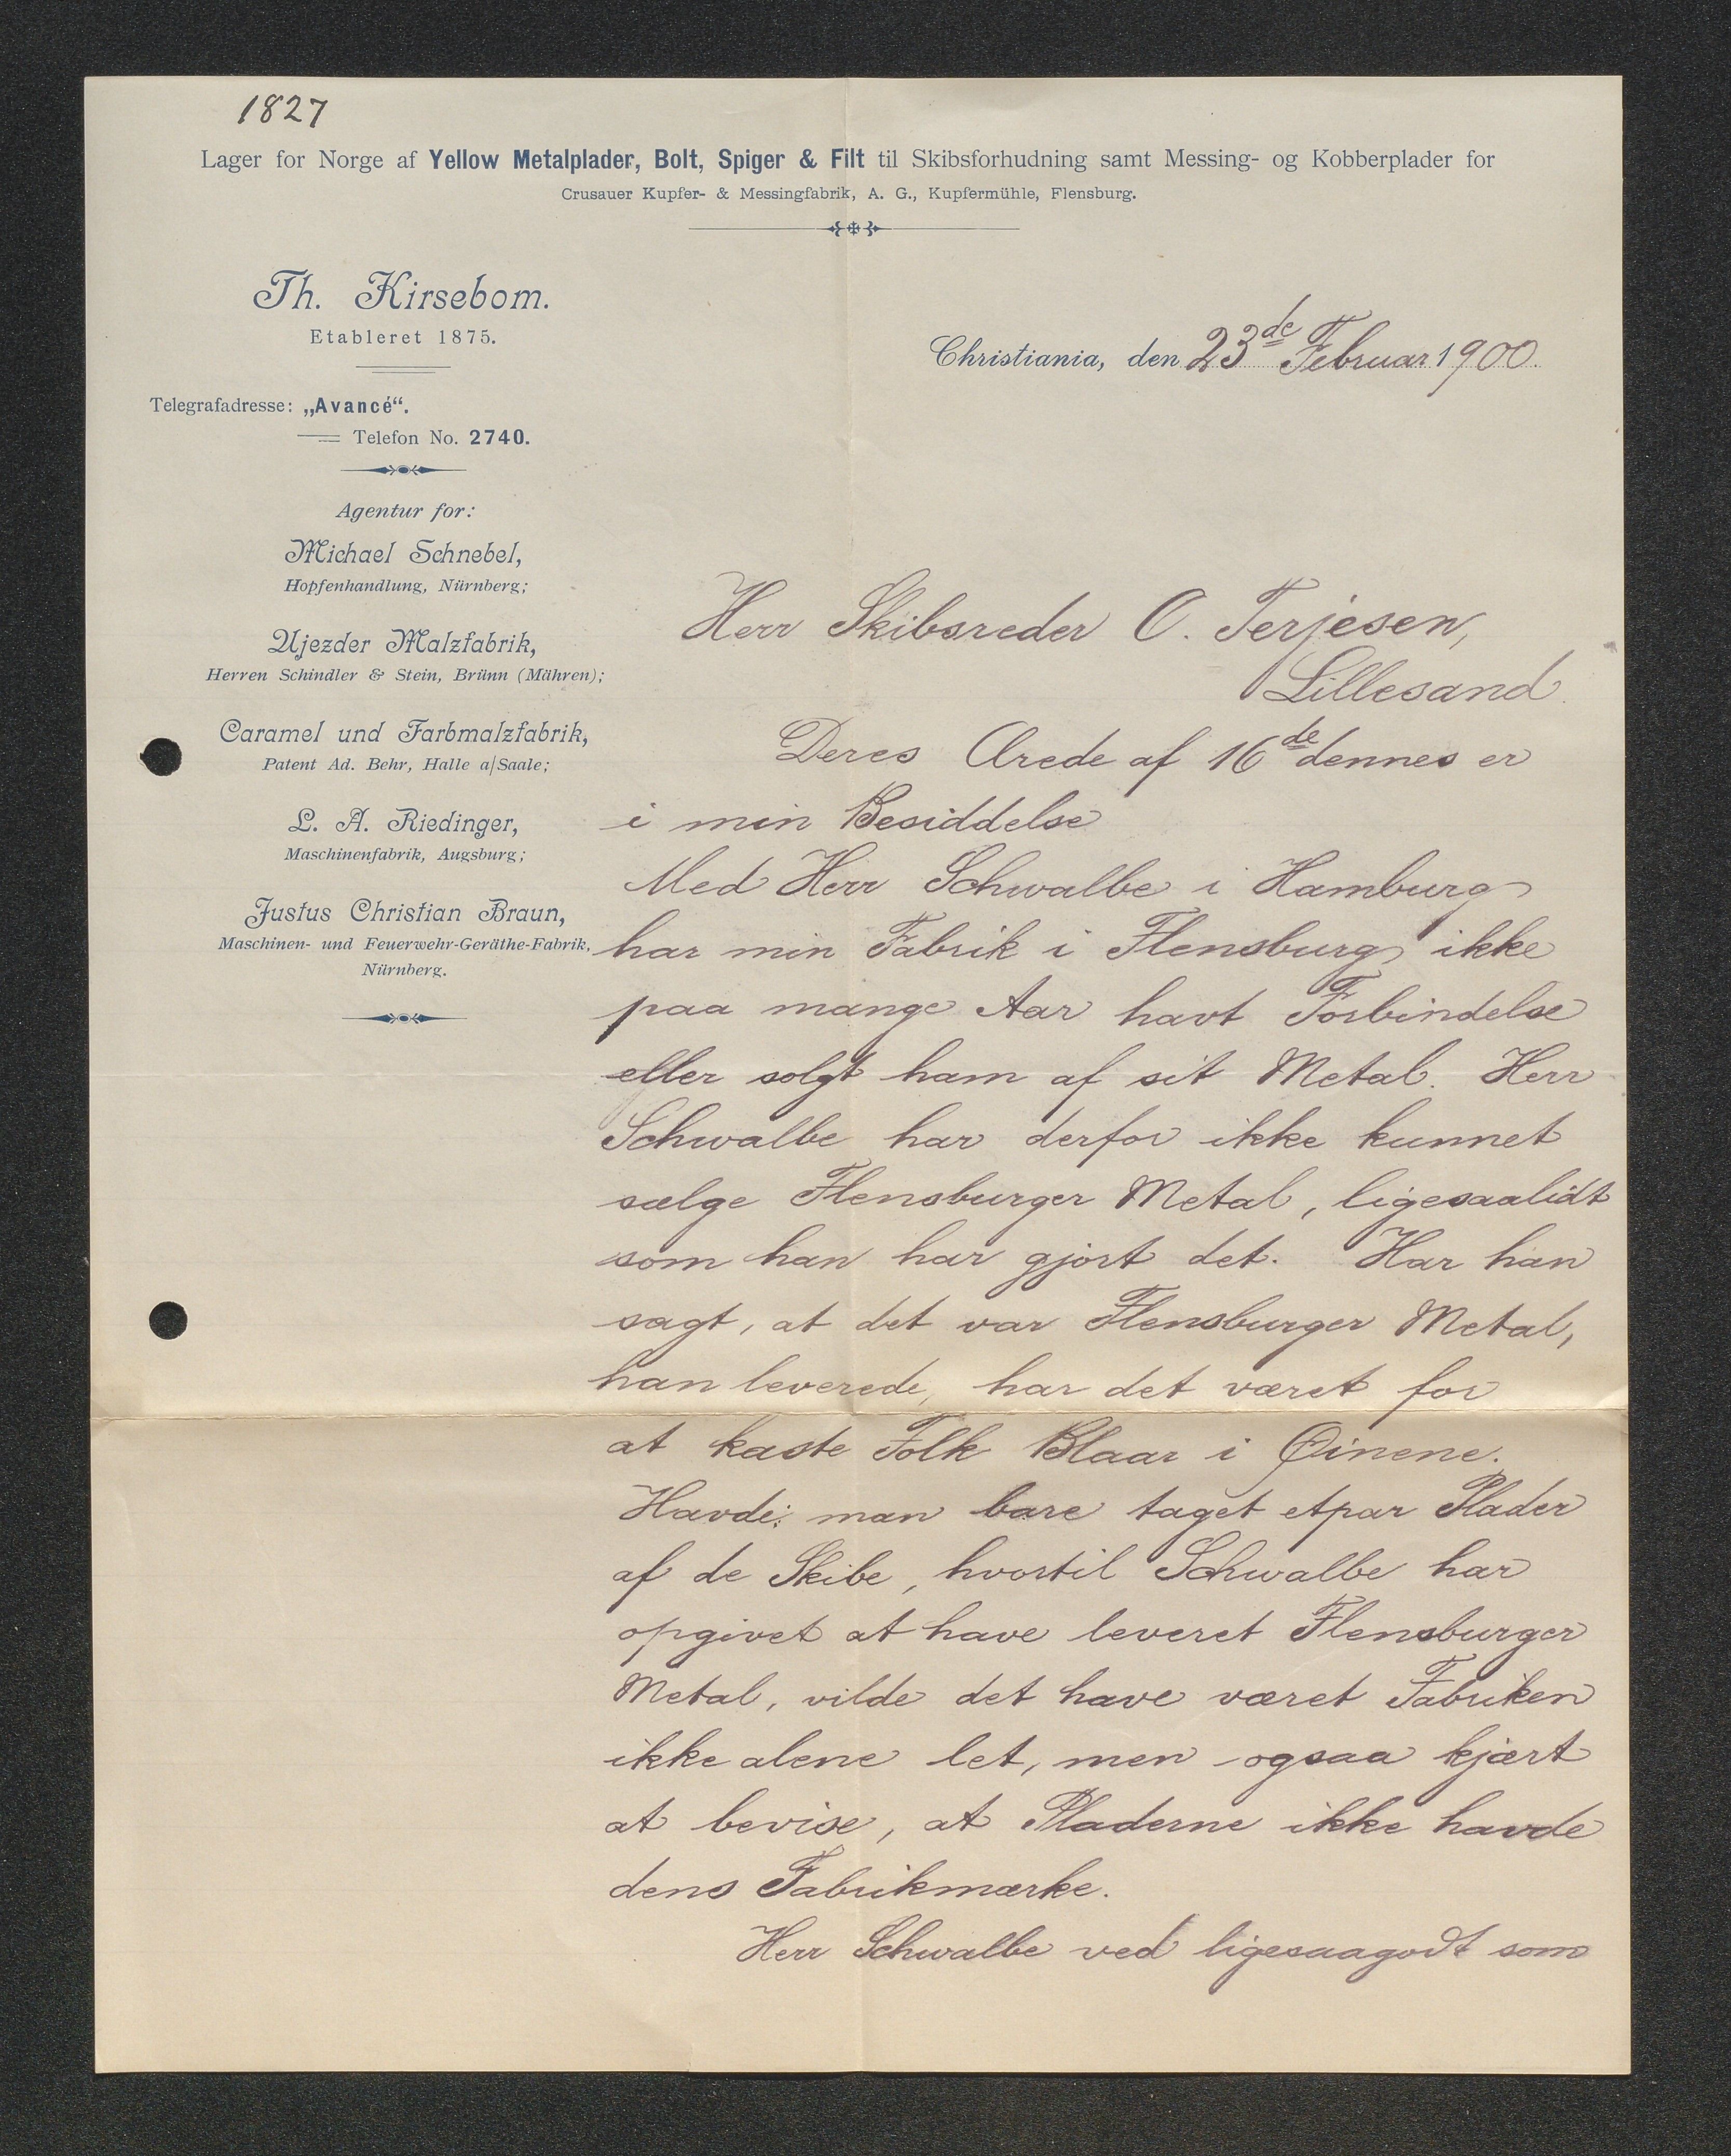 1827
Lager for Norge af Yellow Metalplader, Bolt, Spiger & Filt til Skibsforhudning samt Messing- og Kobberplader for
Crusauer Kupfer- & Messingfabrik, A. G., Kupfermühle, Flensburg.
Th. Kirsebom.
Etableret 1875.
Telegrafadresse: „Avancé“.
Telefon No. 2740.
Agentur for:
Michael Schnebel,
Hopfenhandlung, Nürnberg;
Ujezder Malzfabrik,
Herren Schindler & Stein, Brünn (Mähren);
Caramel und Farbmalzfabrik,
Patent Ad. Behr, Halle a/Saale;
L. A. Riedinger,
Maschinenfabrik, Augsburg;
Justus Christian Braun,
Maschinen- und Feuerwehr-Geräthe-Fabrik,
Nürnberg.
Christiania, den 23de Februar 1900.
Herr Skibsreder O. Terjesen,
Lillesand
Deres Ærede af 16de dennes er
i min Besiddelse
Med Herr Schwalbe i Hamburg
har min Fabrik i Flensburg ikke
paa mange Aar havt Forbindelse
eller solgt ham af sit Metal. Herr
Schwalbe har derfor ikke kunnet
sælge Flensburger Metal, ligesaalidt
som han har gjort det. Har han
sagt, at det var Flensburger Metal,
han leverede, har det været for
at kaste Folk Blaar i Øinene.
Havde man bare taget etpar Plader
af de Skibe, hvortil Schwalbe har
opgivet at have leveret Flensburger
Metal, vilde det have været Fabriken
ikke alene let, men ogsaa kjært
at bevise, at Pladerne ikke havde
dens Fabrikmærke.
Herr Schwalbe ved ligesaagodt som